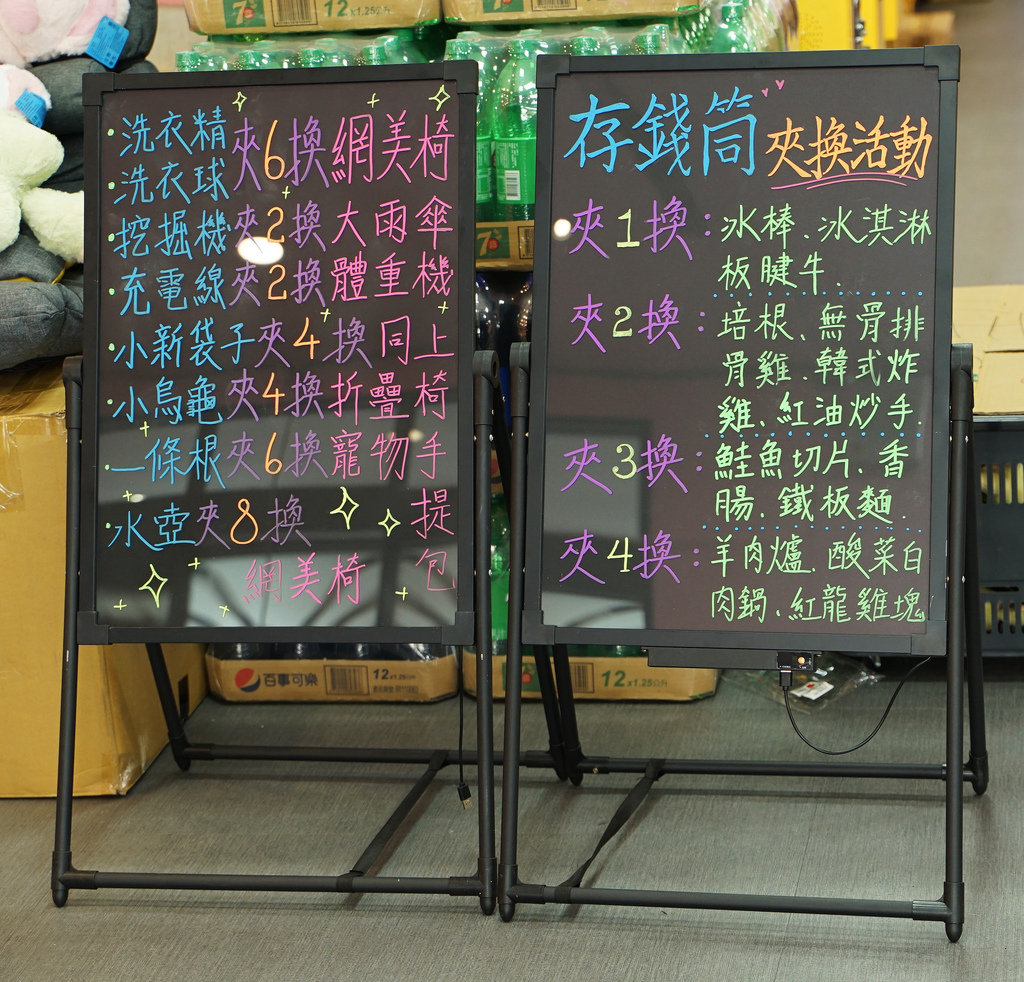 洗衣精
洗衣球 夾6換網美椅
挖掘機夾2換大雨傘
充電線夾2換體重機
小新袋子夾4換同上
小烏龜夾4換折疊椅
一條根夾6換寵物手提包
水壺夾8換
網美椅
存錢筒夾換活動
夾1換:冰棒、冰淇淋
板腱牛.
夾2換:培根、無骨排
骨雞.韓式炸
雞、紅油炒手.
夾3換:鮭魚切片.香
腸、鐵板麵.
夾4換:羊肉爐.酸菜白
肉鍋、紅龍雞塊
12x1.25公升
百事可樂
12x1.25公升
12x1.25公升